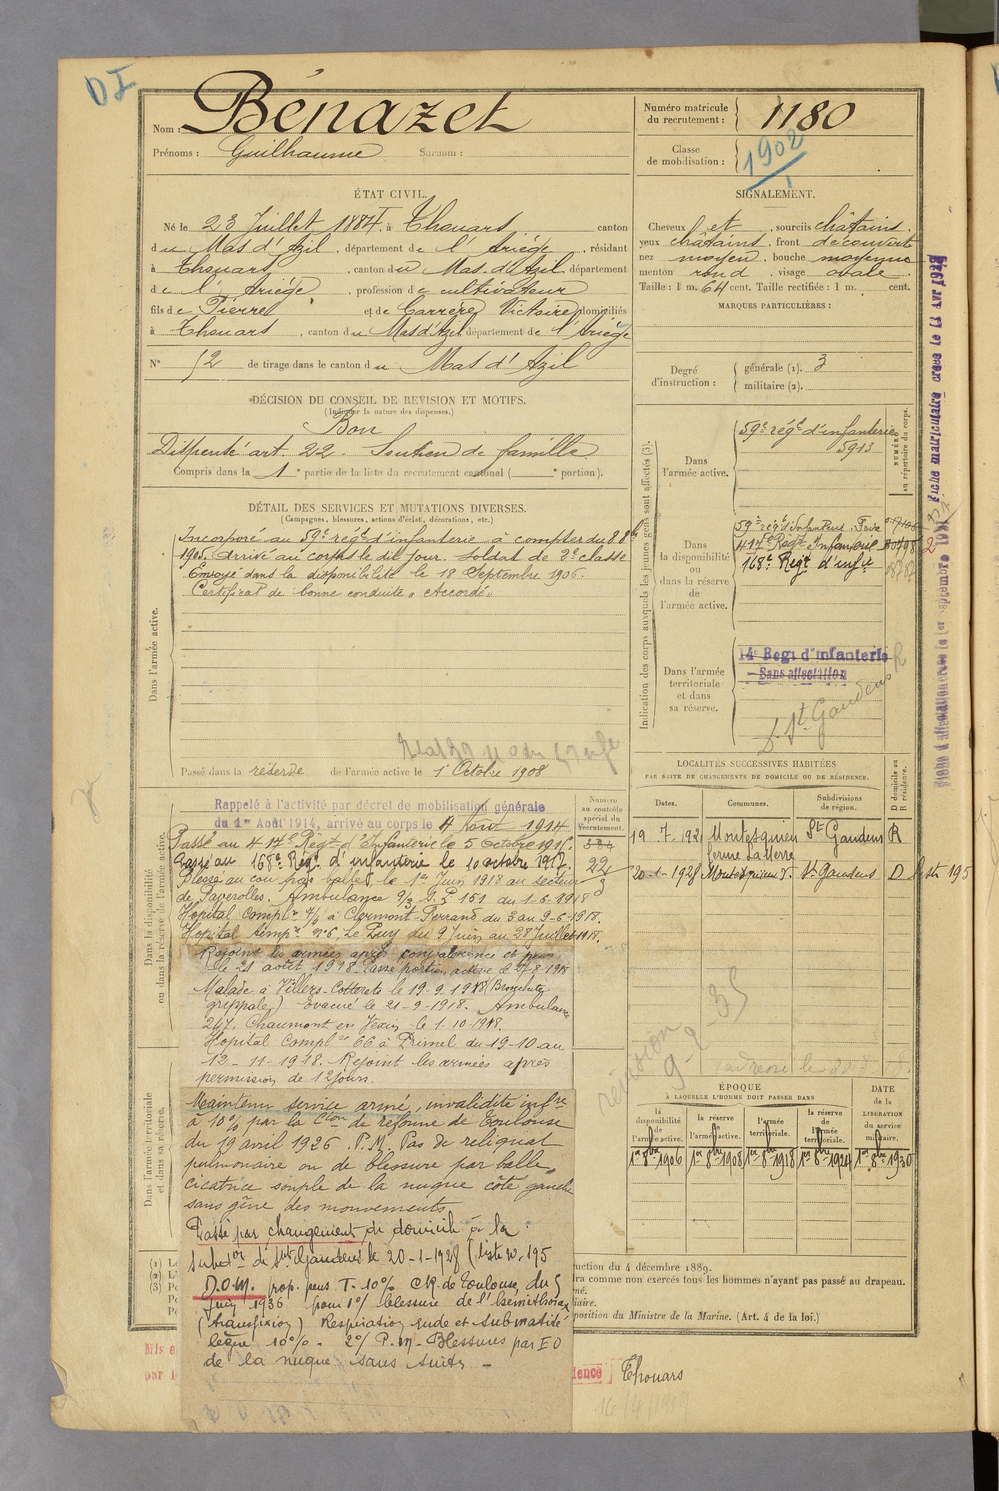 DI
Nom : Bénazet
Prénoms : Guilhaume Surnom :
Numéro matricule du recrutement : 1180
Classe de mobilisation : 1902
ÉTAT CIVIL.
Né le 23 Juillet 1884, à Thouars canton
du Mas d'Azil, département de l'Ariège, résidant
à Thouars, canton du Mas d'Azil, département
de l'Ariège, profession de cultivateur
fils de Pierre et de Carrère Victoire domiciliés
à Thouars, canton du Mas d'Azil département de l'Ariège
N° 52 de tirage dans le canton du Mas d'Azil
SIGNALEMENT.
Cheveux et, sourcils châtains
yeux châtains, front découvert
nez moyen, bouche moyenne
menton rond, visage ovale.
Taille : 1 m. 64 cent. Taille rectifiée : 1 m. cent.
MARQUES PARTICULIÈRES :
Degré d'instruction : générale (1). 3
militaire (2).
DÉCISION DU CONSEIL DE REVISION ET MOTIFS.
(Indiquer la nature des dispenses.)
Bon
Dispensé art. 22. Soutien de famille
Compris dans la 1e partie de la liste du recrutement cantonal ( e portion).
DÉTAIL DES SERVICES ET MUTATIONS DIVERSES.
(Campagnes, blessures, actions d'éclat, décorations, etc.)
Dans l'armée active.
Incorporé au 59e régt d'infanterie à compter du 8 8bre
1905. Arrivé au corps le dit jour. Soldat de 2e classe
Envoyé dans la disponibilité le 18 Septembre 1906.
Certificat de bonne conduite « Accordé »
Passé dans la réserve de l'armée active le 1er Octobre 1908
Indication des corps auxquels les jeunes gens sont affectés (3).
Dans l'armée active.
59e régt d'infanterie
5913
NUMÉRO au répertoire du corps.
Dans la disponibilité ou dans la réserve de l'armée active.
59e régt d'Infanterie
417e Régt Infanterie
168e Régt d'infie
Dans l'armée territoriale et dans sa réserve.
14e Regt d'infanterie
Sans affectation
St Gaudens
Dans la disponibilité ou dans la réserve de l'armée active.
Rappelé à l'activité par décret de mobilisation générale
du 1er Août 1914, arrivé au corps le 4 Août 1914
Passé au 417e Régt d'Infanterie le 5 octobre 1915.
Passé au 168e Régt d'infanterie le 10 octobre 1917.
Blessé au cou par balles, le 1er Juin 1918 au secteur
de Faverolles. Ambulance 9/3 S.P. 151 du 1-6-1918
Hopital Complre 4/6 à Clermont-Ferrand du 3 au 9-6-1918.
Hopital tempre n°6, Le Puy du 9 Juin au 28 Juillet 1918.
Rejoint les armées après convalescence et perm
le 21 août 1918. Passé portion active le
Malade à Villers-Cotterets le 19-9-1918 (Bronchite
grippale) Evacué le 21-9-1918. Ambulance
247. Chaumont en Vexin le 1-10-1918.
Hopital Complre 66 à Primel du 19-10 au
12-11-1918. Rejoint les armées après
permission de 12 jours.
Numéro au contrôle spécial du recrutement.
22
3
Dans l'armée territoriale et dans sa réserve.
Maintenu service armé, invalidité infre
à 10% par la Cion de réforme de Toulouse
du 19 avril 1926. P.M. Pas de reliquat
pulmonaire ou de blessure par balle,
cicatrice souple de la nuque côté gauche
sans gêne des mouvements
Passé par changement de domicile à la
subdon de St Gaudens le 20-1-1928 (liste n. 195
D.O.M. prop. pens T. 10% CR. de Toulouse du 5
Juin 1936 pour 1°/ blessure de l'hémithorax
(transfixion) Respiration rude et submatité
légère 10% - 2°/ P.M. Blessures par E O
de la nuque sans suites -
LOCALITÉS SUCCESSIVES HABITÉES
PAR SUITE DE CHANGEMENTS DE DOMICILE OU DE RÉSIDENCE.
Dates. Communes. Subdivisions de région. D domicile ou R résidence.
19 7. 1921 Montesquieu St Gaudens R
ferme
20-1-1928 Montesquieu V. St Gaudens D liste 195
révision
ÉPOQUE
À LAQUELLE L'HOMME DOIT PASSER DANS
la disponibilité de l'armée active. la réserve de l'armée active. l'armée territoriale. la réserve de l'armée territoriale. DATE DE LA LIBÉRATION du service militaire.
1er 8bre 1906 1er 8bre 1908 1er 8bre 1918 1er 8bre 1924 1er 8bre 1930
(1)
(2)
(3)
uction du 4 décembre 1889.
dra comme non exercés tous les hommes n'ayant pas passé au drapeau.
position du Ministre de la Marine. (Art. 4 de la loi.)
Mis e
par
dence] Thouars